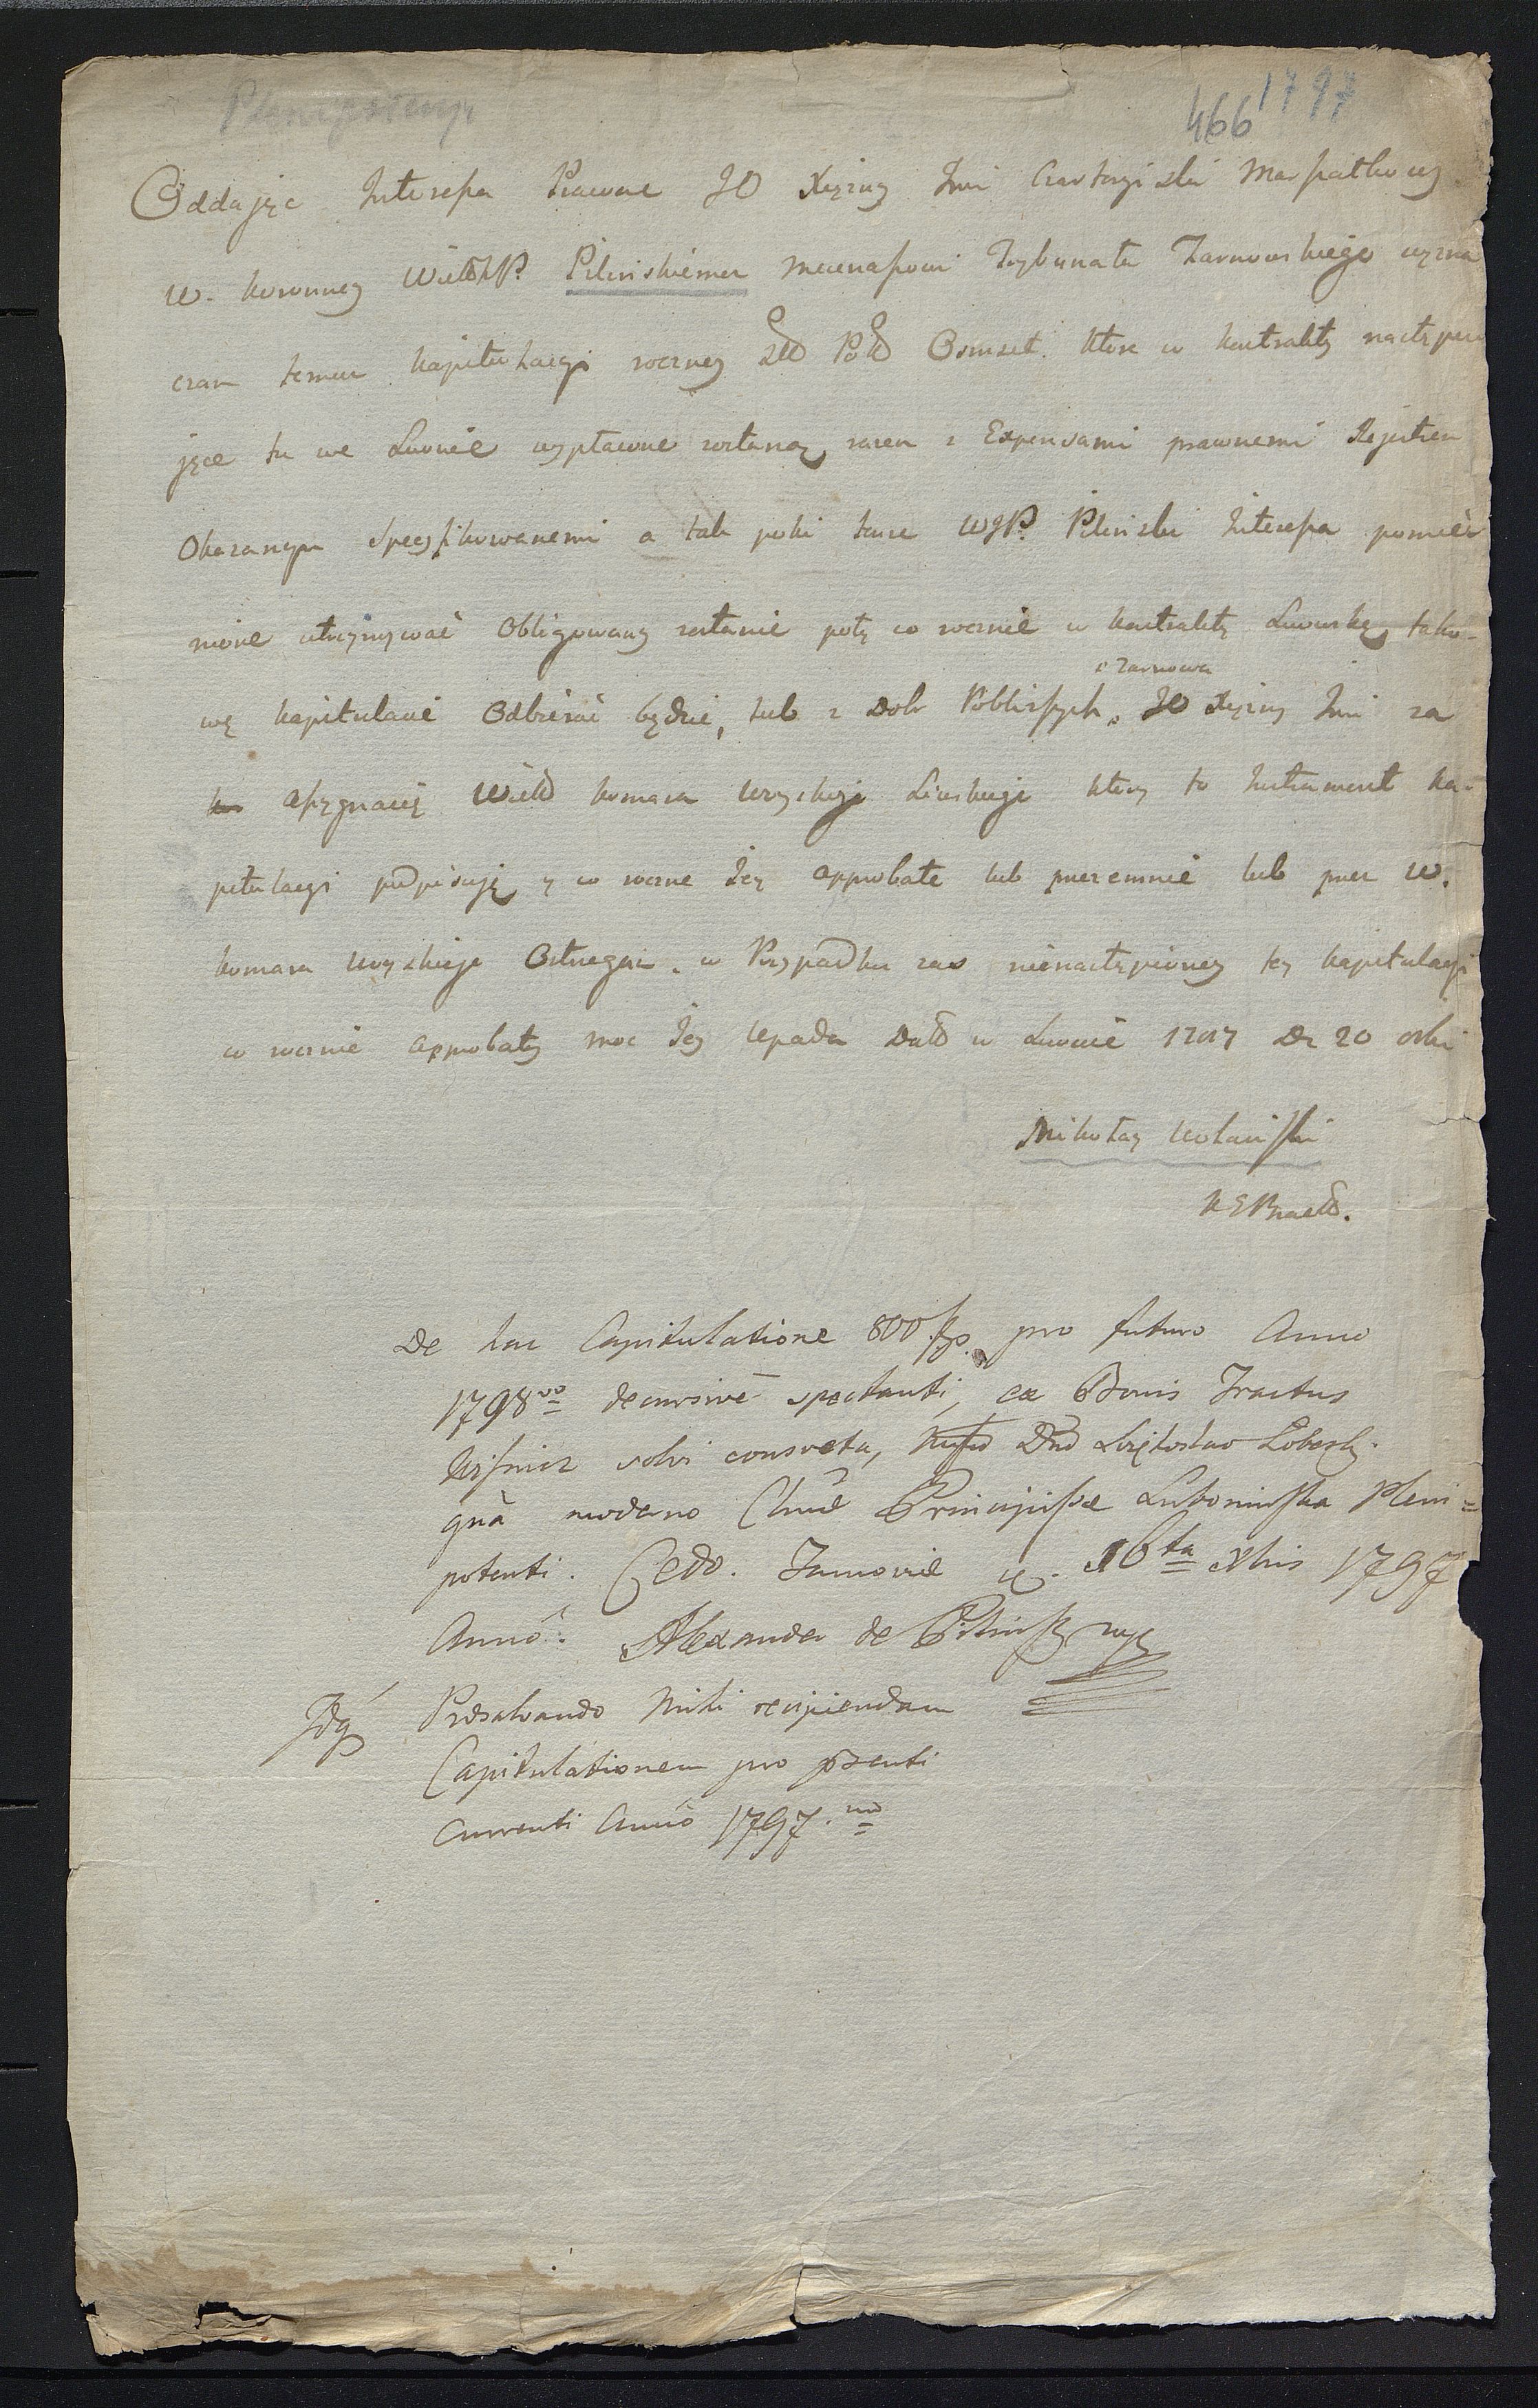 466 1797
Oddając Interessa Prawne JO Xiężny Jmi Czartoryiski Marszałkowy
W. koronney WielkP. Pilinskiemu mecenassowi Trybunału Tarnowskiego wyzna
czam temuż kapitulacyi roczney Złł Pold Osmset. które w kontrakty nastempu
jące tu we Lwowie wypłacone zostaną razem z Expensami prawnemi Rejestrem
Okazanym specyfikowanemi a tak poki tenże WJP. Pilinski Interessa pomie=
nione utrzymywać Obligowany zostanie poty co rocznie w kontrakty Lwowskę tako-
wę kapitulacie Odbierać będzie, lub z Dobr Pobliższych JO Xiężny Jmi za
z Tarnowa
assygnacię Wielk komara Uryskiego który to Instrument ka=
pitulacyi podpisuję y co roczne Jey approbatę lub przezemnie lub przez W.
komara Uryskiego Ostrzegam. w Przypadku zaś nienastąpioney tey kapitulacyi
co rocznie approbaty moc Jey Upada Datt w Lwowie 1797 Dz 20
Mikołay Wolański
De hac Capitulatione 800 fp. pro futuro Anno
1798vo decursivè spectanti, ex Bonis Tractus
Wisnicz solvi consveta, Dno
quà moderno Principissæ Lubomirska Pleni=
potenti. Cedo. Tarnoviæ 16ta Xbris 1797
Annô. Alexander de Pilinski mp
Idq Præsalvando Mihi recipiendam
Capitulationem pro præsenti
Currenti Annô 1797.mo